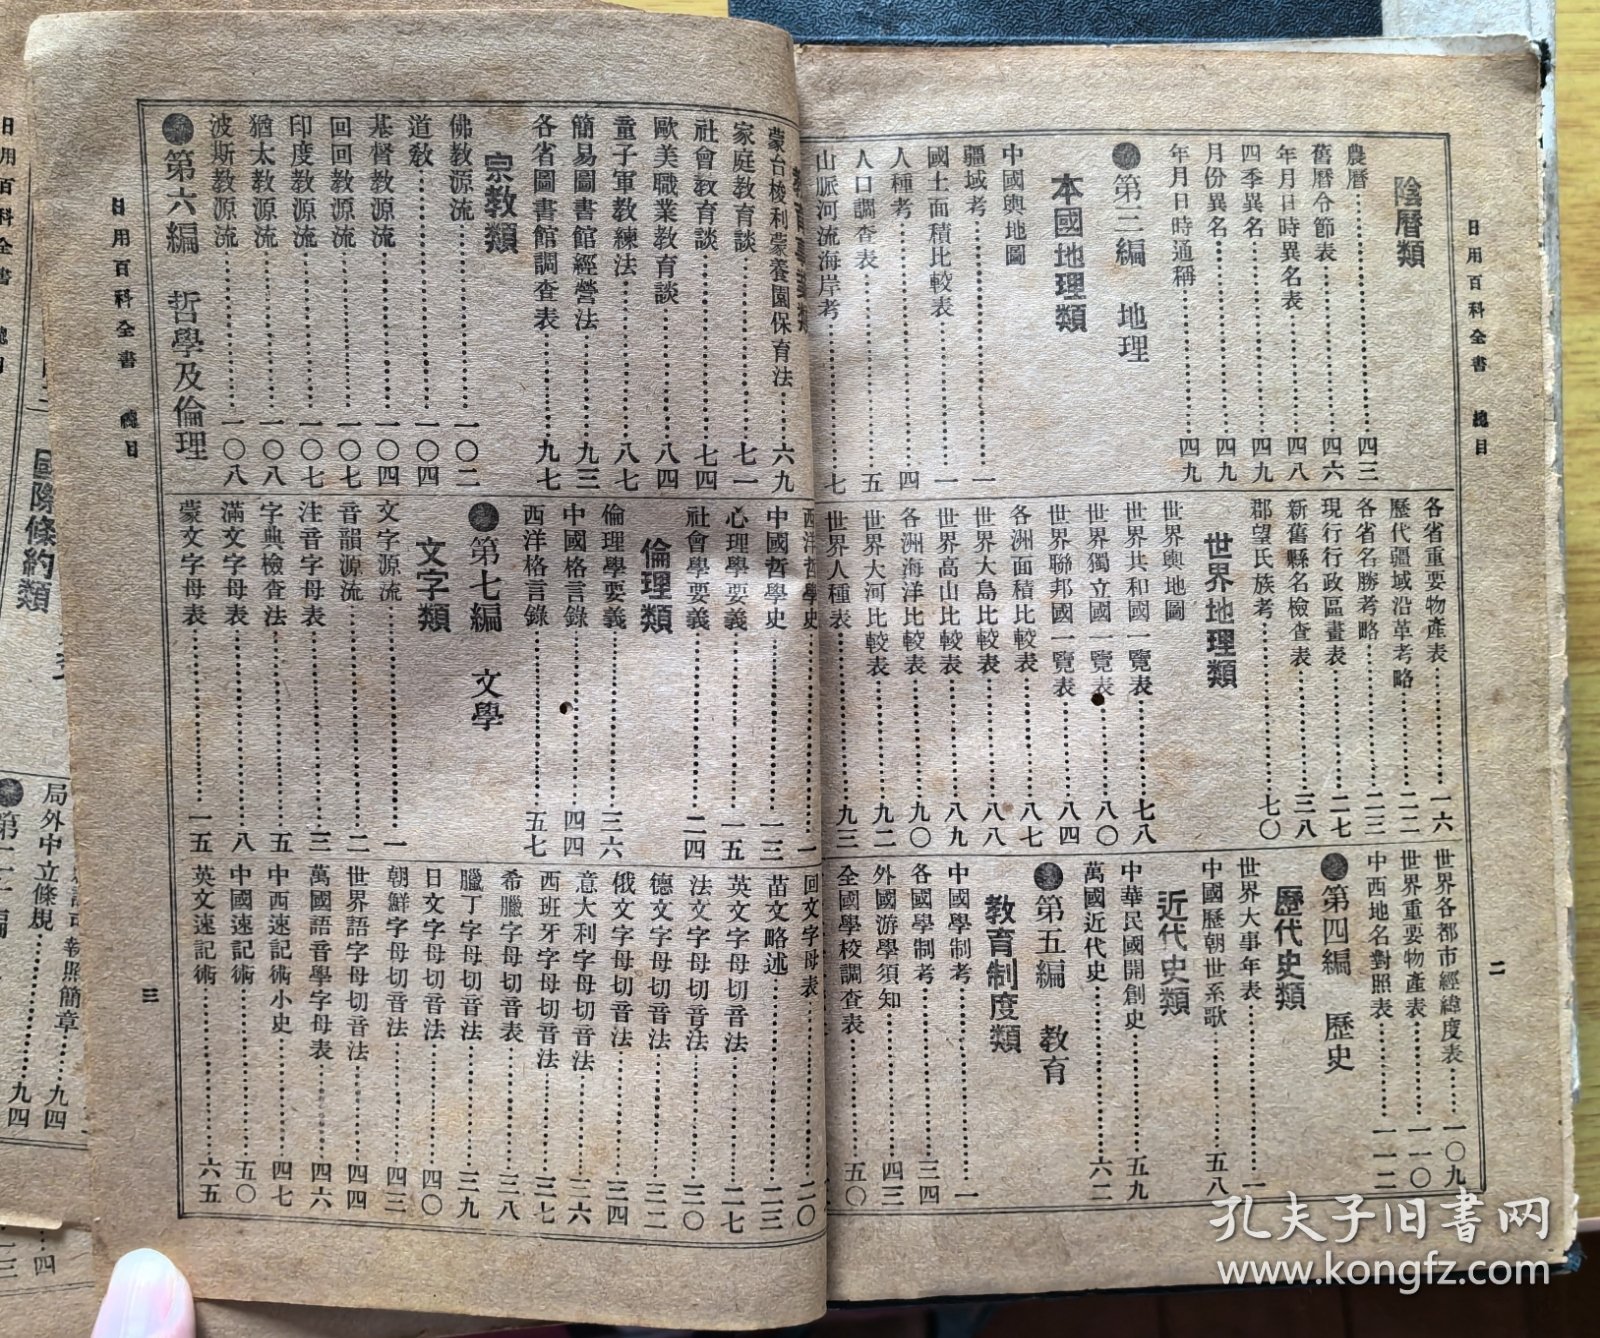 日用百科全書 總目
二
陰曆類
農曆⋯⋯四三
舊曆令節表⋯⋯四六
年月日時異名表⋯⋯四八
四季異名⋯⋯四九
月份異名⋯⋯四九
年月日時通稱⋯⋯四九
第三編 地理
本國地理類
中國輿地圖
疆域考⋯⋯一
國土面積比較表⋯⋯一
人種考⋯⋯四
人口調查表⋯⋯五
山脈河流海岸考⋯⋯七
各省重要物產表⋯⋯一六
歷代疆域沿革考略⋯⋯二二
各省名勝考略⋯⋯二三
現行行政區畫表⋯⋯二七
新舊縣名檢查表⋯⋯三八
郡望氏族考⋯⋯七〇
世界地理類
世界輿地圖
世界共和國一覽表⋯⋯七八
世界獨立國一覽表⋯⋯八〇
世界聯邦國一覽表⋯⋯八四
各洲面積比較表⋯⋯八七
世界大島比較表⋯⋯八八
世界高山比較表⋯⋯八九
各洲海洋比較表⋯⋯九〇
世界大河比較表⋯⋯九二
世界人種表⋯⋯九三
世界各都市經緯度表⋯⋯一〇九
世界重要物產表⋯⋯一一〇
中西地名對照表⋯⋯一一二
第四編 歷史
歷代史類
世界大事年表⋯⋯一
中國歷朝世系歌⋯⋯五八
近代史類
中華民國開創史⋯⋯五九
萬國近代史⋯⋯六二
第五編 教育
教育制度類
中國學制考⋯⋯一
各國學制考⋯⋯三四
外國游學須知⋯⋯四三
全國學校調查表⋯⋯五〇
蒙台梭利蒙養園保育法⋯⋯六九
家庭教育談⋯⋯七一
社會教育談⋯⋯七四
歐美職業教育談⋯⋯八四
童子軍教練法⋯⋯八七
簡易圖書館經營法⋯⋯九三
各省圖書館調查表⋯⋯九七
宗教類
佛教源流⋯⋯一〇二
道教⋯⋯一〇四
基督教源流⋯⋯一〇四
回回教源流⋯⋯一〇七
印度教源流⋯⋯一〇七
猶太教源流⋯⋯一〇八
波斯教源流⋯⋯一〇八
第六編 哲學及倫理
西洋哲學史⋯⋯一
中國哲學史⋯⋯一三
心理學要義⋯⋯一五
社會學要義⋯⋯二四
倫理類
倫理學要義⋯⋯三六
中國格言錄⋯⋯四四
西洋格言錄⋯⋯五七
第七編 文學
文字類
文字源流⋯⋯一
音韻源流⋯⋯二
注音字母表⋯⋯三
字典檢查法⋯⋯五
滿文字母表⋯⋯八
蒙文字母表⋯⋯一五
回文字母表⋯⋯二〇
苗文略述⋯⋯二三
英文字母切音法⋯⋯二七
法文字母切音法⋯⋯三〇
德文字母切音法⋯⋯三二
俄文字母切音法⋯⋯三四
意大利字母切音法⋯⋯三六
西班牙字母切音法⋯⋯三七
希臘字母切音表⋯⋯三八
臘丁字母切音法⋯⋯三九
日文字母切音法⋯⋯四〇
朝鮮字母切音法⋯⋯四三
世界語字母切音法⋯⋯四四
萬國語音學字母表⋯⋯四六
中西速記術小史⋯⋯四七
中國速記術⋯⋯五〇
英文速記術⋯⋯六五
日用百科全書 總目
三
國際條約類
執照簡章⋯⋯九四
局外中立條規⋯⋯九四
日用百科全書
孔夫子旧書网
www.kongfz.com